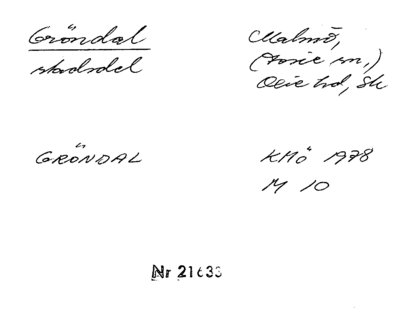 Gröndal
stadsdel
Malmö,
(Fosie sn,)
Oxie hd, Sk
GRÖNDAL
KMÖ 1978
M 10
Nr 21633